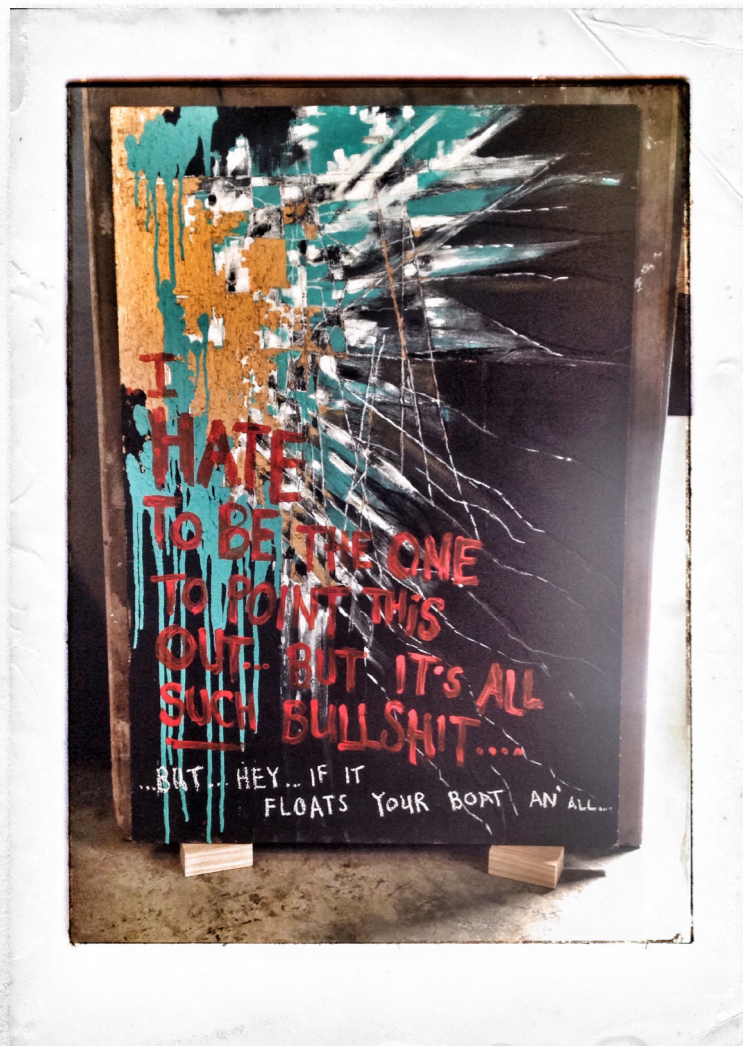 I
HATE
TO BE THE ONE
TO POINT THIS
OUT... BUT IT'S ALL
SUCH BULLSHIT....
...BUT... HEY... IF IT
FLOATS YOUR BOAT AN' ALL...